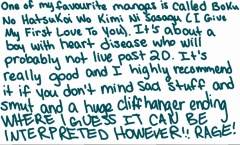 One of my favourite mangas is called Boku
No HatsuKoi Wo Kimi Ni Sasagu (I Give
My First Love To You). It's about a
boy with heart disease who will
probably not live past 20. It's
really good and I highly recommend
it if you don't mind sad stuff and
smut and a huge cliffhanger ending
WHERE I GUESS IT CAN BE
INTERPRETED HOWEVER!! RAGE!